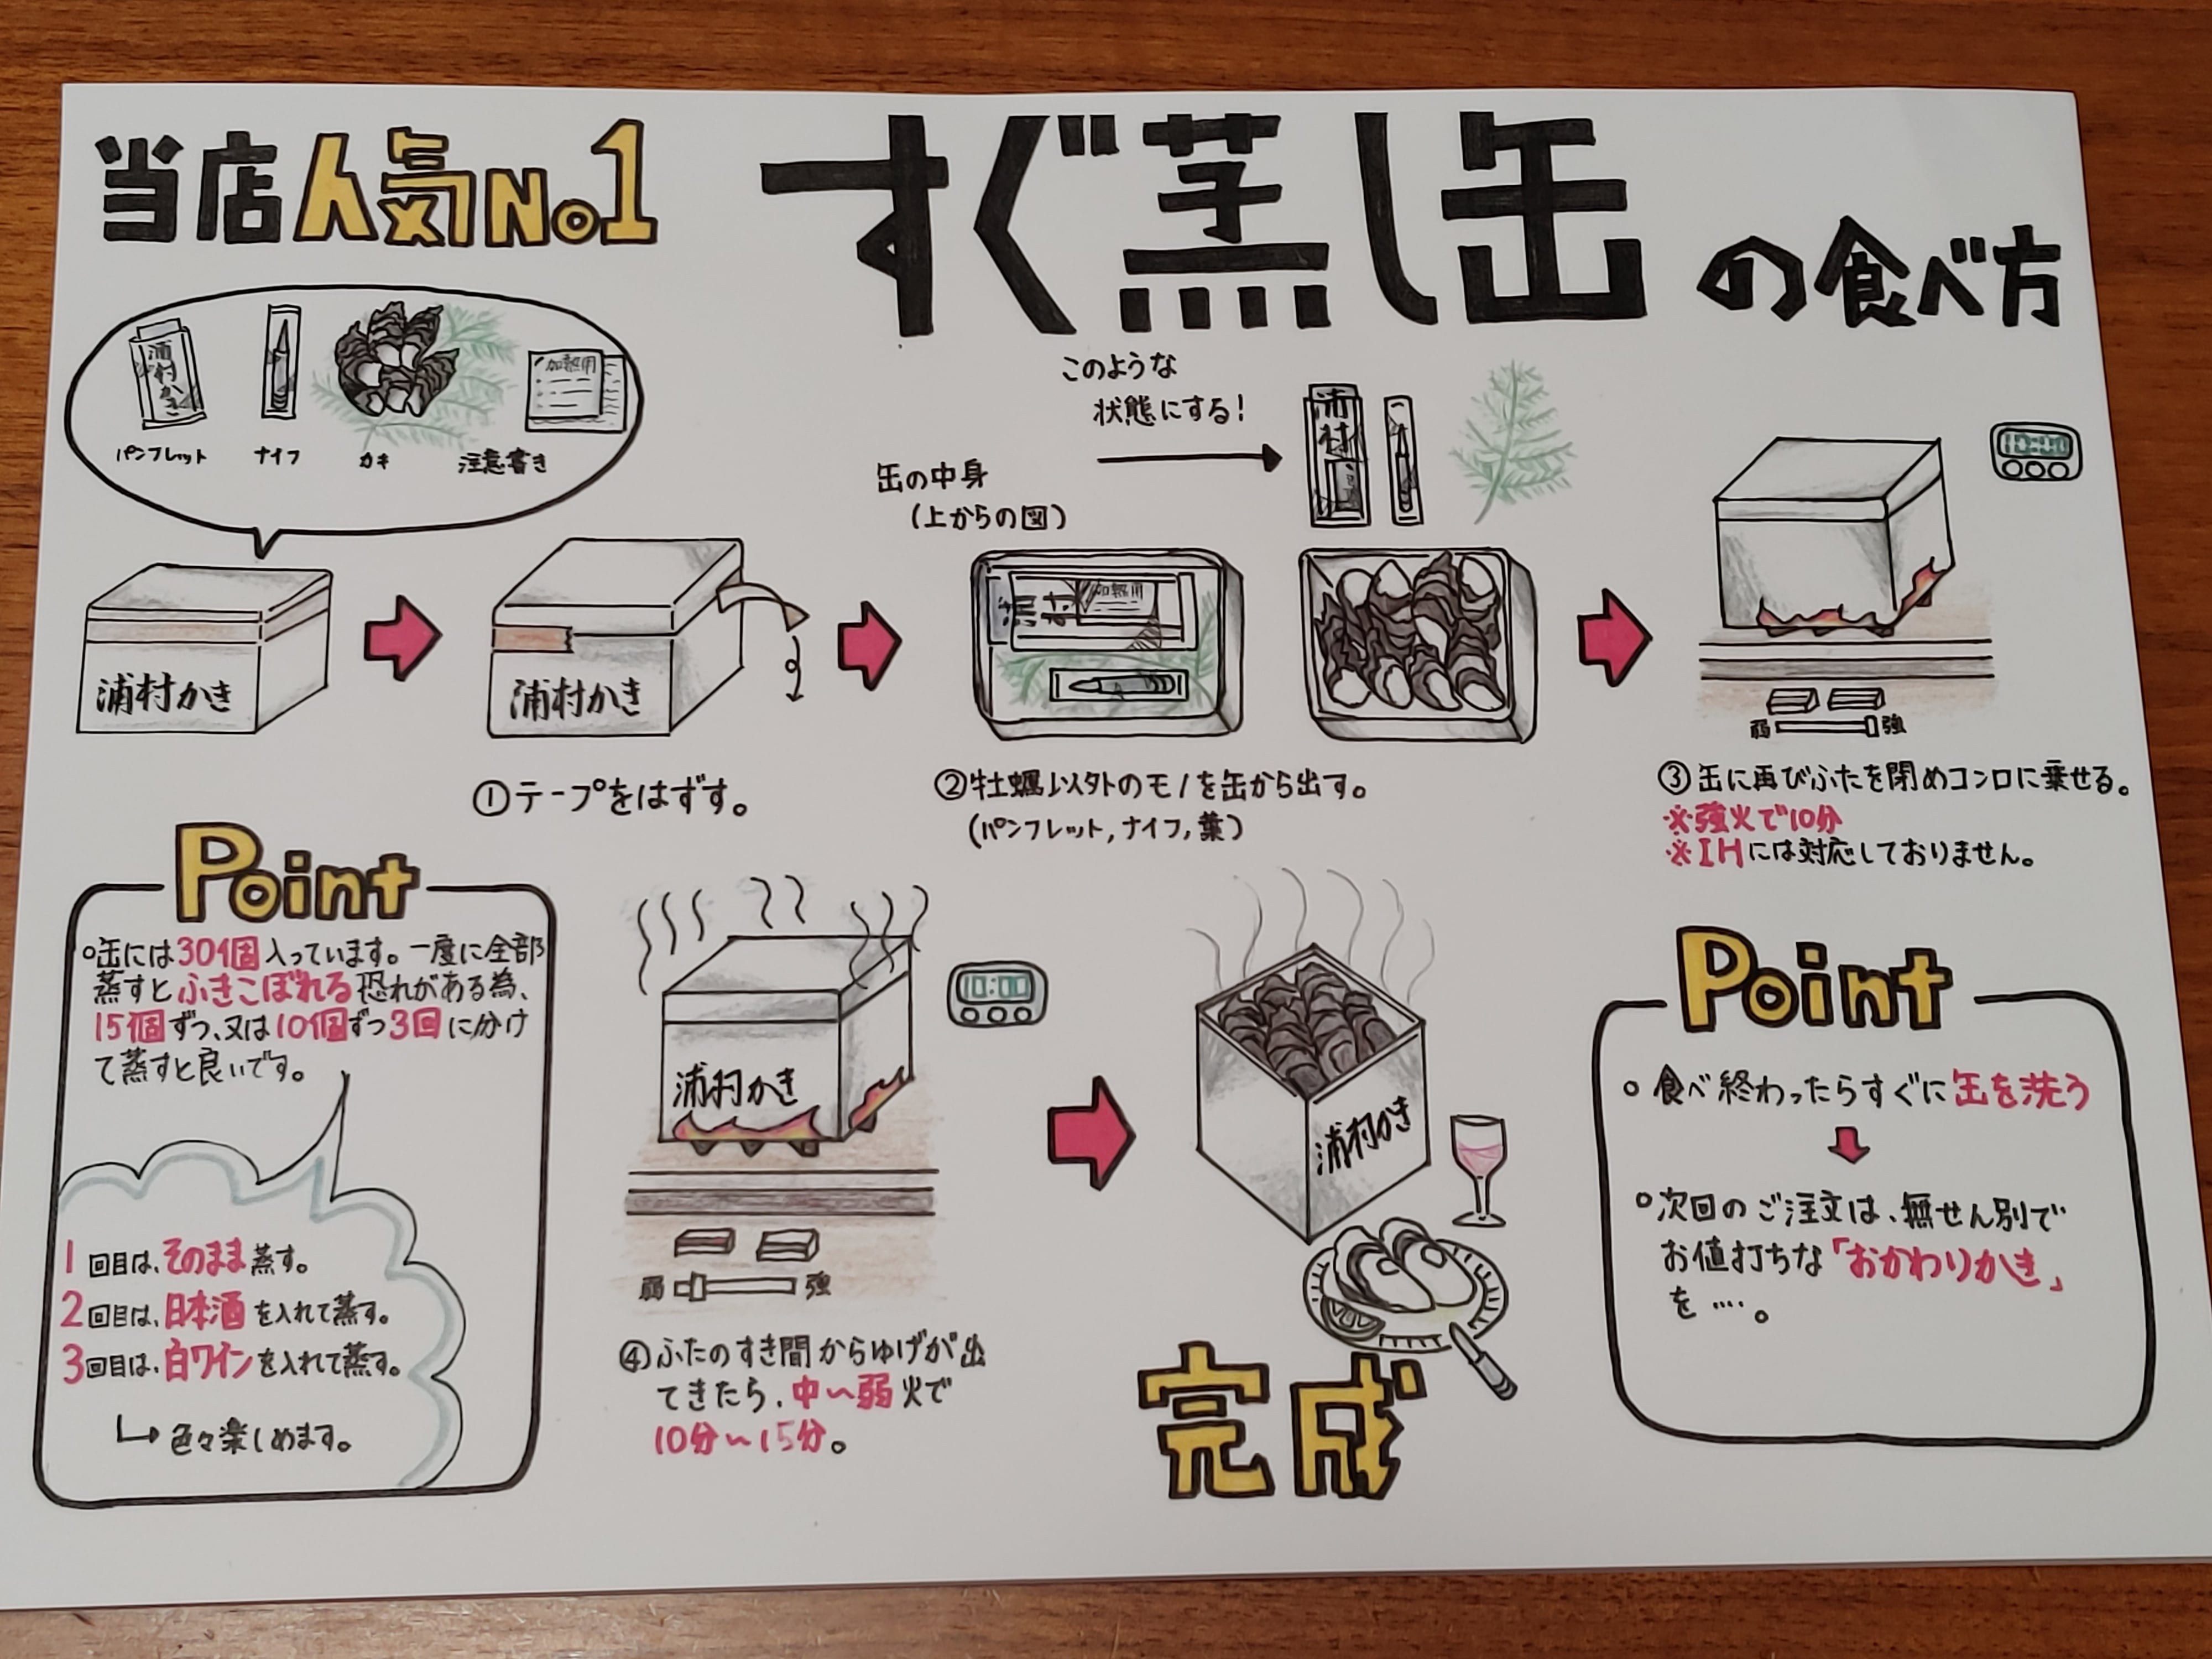 当店人気No.1
すぐ蒸し缶の食べ方
浦村かき
加熱用
パンフレット
ナイフ
カキ
注意書き
浦村かき
浦村かき
①テープをはずす。
缶の中身
(上からの図)
このような
状態にする!
浦村
加熱用
浦村
②牡蠣以外のモノを缶から出す。
(パンフレット,ナイフ,葉)
10:00
弱 強
③缶に再びふたを閉めコンロに乗せる。
※強火で10分
※IHには対応しておりません。
Point
○缶には30個入っています。一度に全部
蒸すとふきこぼれる恐れがある為、
15個ずつ、又は10個ずつ3回に分け
て蒸すと良いです。
1回目は、そのまま蒸す。
2回目は、日本酒を入れて蒸す。
3回目は、白ワインを入れて蒸す。
色々楽しめます。
浦村かき
10:00
弱 強
④ふたのすき間からゆげが出
てきたら、中〜弱火で
10分〜15分。
浦村かき
完成
Point
○食べ終わったらすぐに缶を洗う
○次回のご注文は、無せん別で
お値打ちな「おかわりかき」
を….。